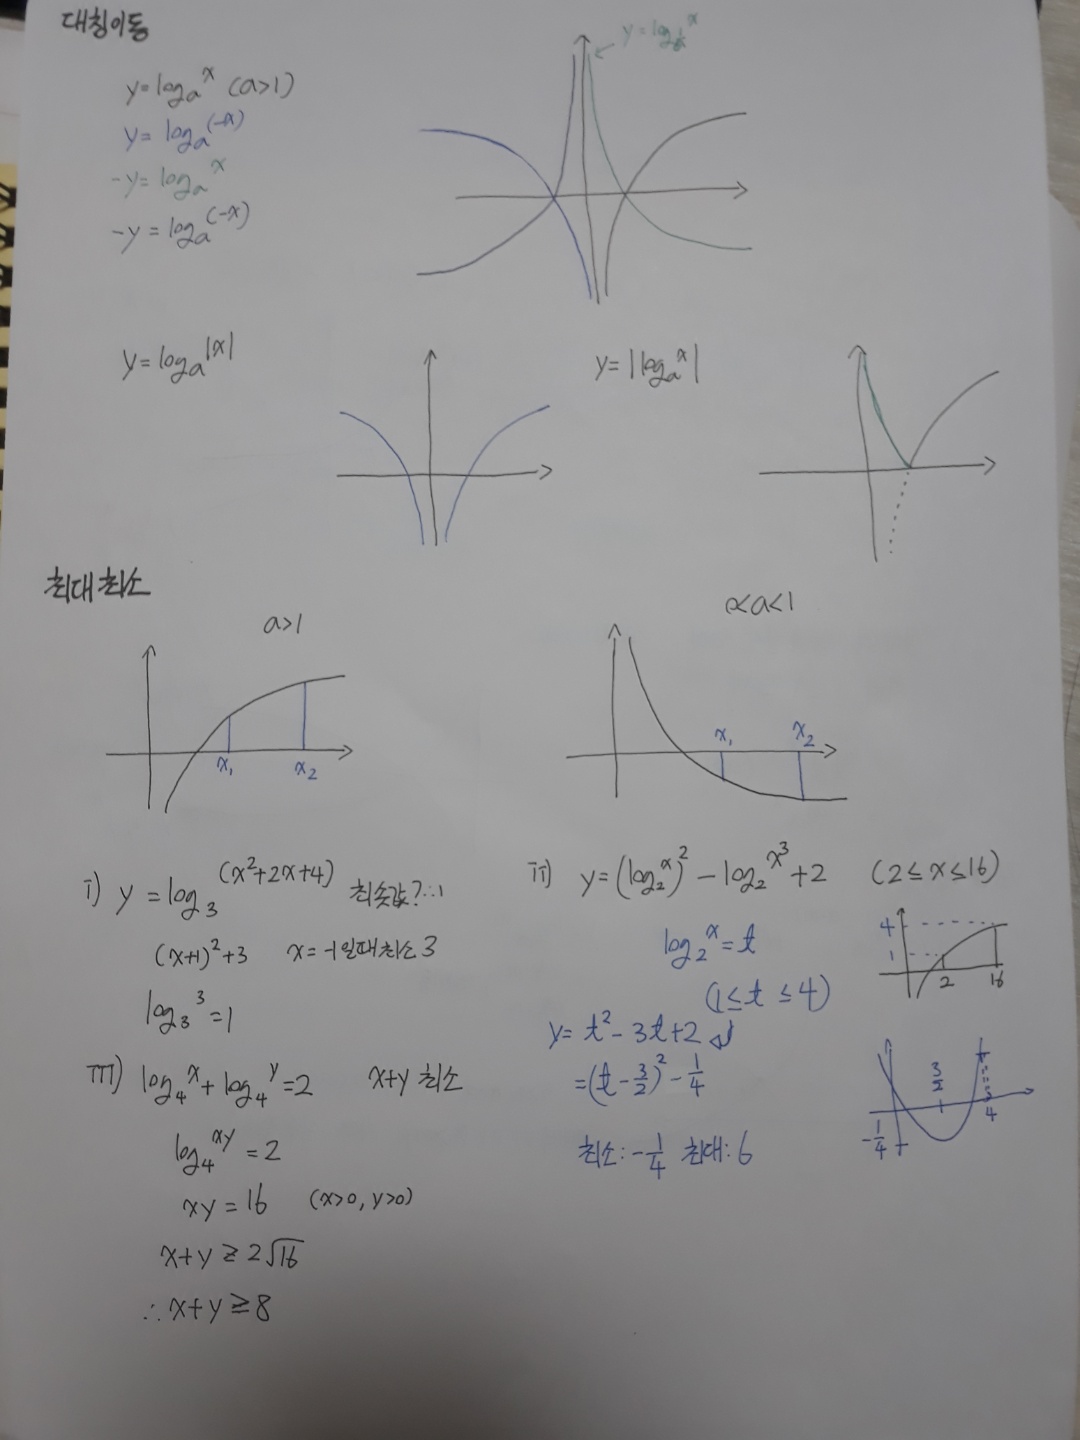 대칭이동
y = logₐx (a>1)
y = logₐ(-x)
-y = logₐx
-y = logₐ(-x)
y = log
y = logₐ|x|
y = |logₐx|
최대최소
a>1
0<a<1
x₁ x₂
x₁ x₂
i) y = log₃(x²+2x+4) 최솟값? ∴1
(x+1)²+3 x=-1일때 최소 3
log₃3 = 1
ii) y = (log₂x)² - log₂x³ + 2 (2≤x≤16)
log₂x = t
(1≤t≤4)
4
1
2 16
y = t² - 3t + 2
= (t - 3/2)² - 1/4
최소: -1/4 최대: 6
3/2
4
-1/4
iii) log₄x + log₄y = 2 x+y 최소
log₄xy = 2
xy = 16 (x>0, y>0)
x+y ≥ 2√16
∴ x+y ≥ 8